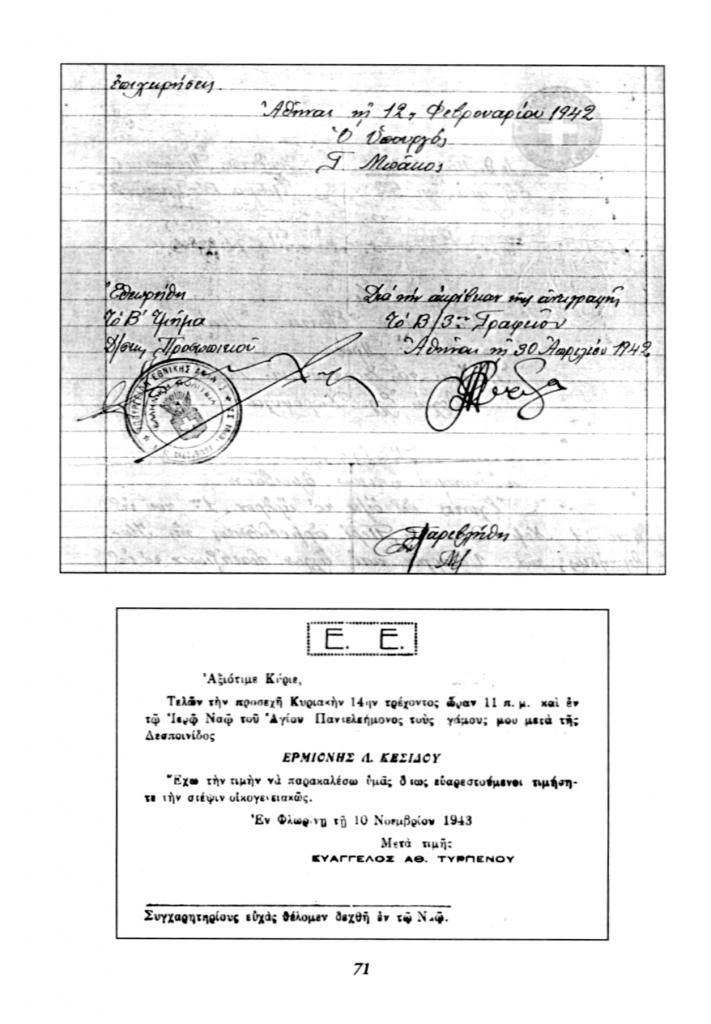 ἐπιχειρήσεις.
Ἀθῆναι τῇ 12ῃ Φεβρουαρίου 1942
Ὁ Ὑπουργός
Γ. Μπάκος
Ἐθεωρήθη
Διά τήν ἀκρίβειαν τῆς ἀντιγραφῆς
Τό Β' Τμῆμα
Τό Β/3ον Γραφεῖον
Δ/σεως Προσωπικοῦ
Ἀθῆναι τῇ 30 Ἀπριλίου 1942
ΕΘΝΙΚΗΣ
ΕΛΛΗΝΙΚΗ ΠΟΛΙΤΕΙΑ
Παρεβλήθη
Ε. Ε.
Ἀξιότιμε Κύριε,
Τελῶν τὴν προσεχῆ Κυριακὴν 14ην τρέχοντος ὥραν 11 π. μ. καὶ ἐν
τῷ Ἱερῷ Ναῷ τοῦ Ἁγίου Παντελεήμονος τοὺς γάμους μου μετὰ τῆς
Δεσποινίδος
ΕΡΜΙΟΝΗΣ Λ. ΚΕΣΙΔΟΥ
Ἔχω τὴν τιμὴν νὰ παρακαλέσω ὑμᾶς ὅπως εὐαρεστούμενοι τιμήση-
τε τὴν στέψιν οἰκογενειακῶς.
Ἐν Φλωρίνῃ τῇ 10 Νοεμβρίου 1943
Μετὰ τιμῆς
ΕΥΑΓΓΕΛΟΣ ΑΘ. ΤΥΡΠΕΝΟΥ
Συγχαρητηρίους εὐχὰς θέλομεν δεχθῆ ἐν τῷ Ναῷ.
71